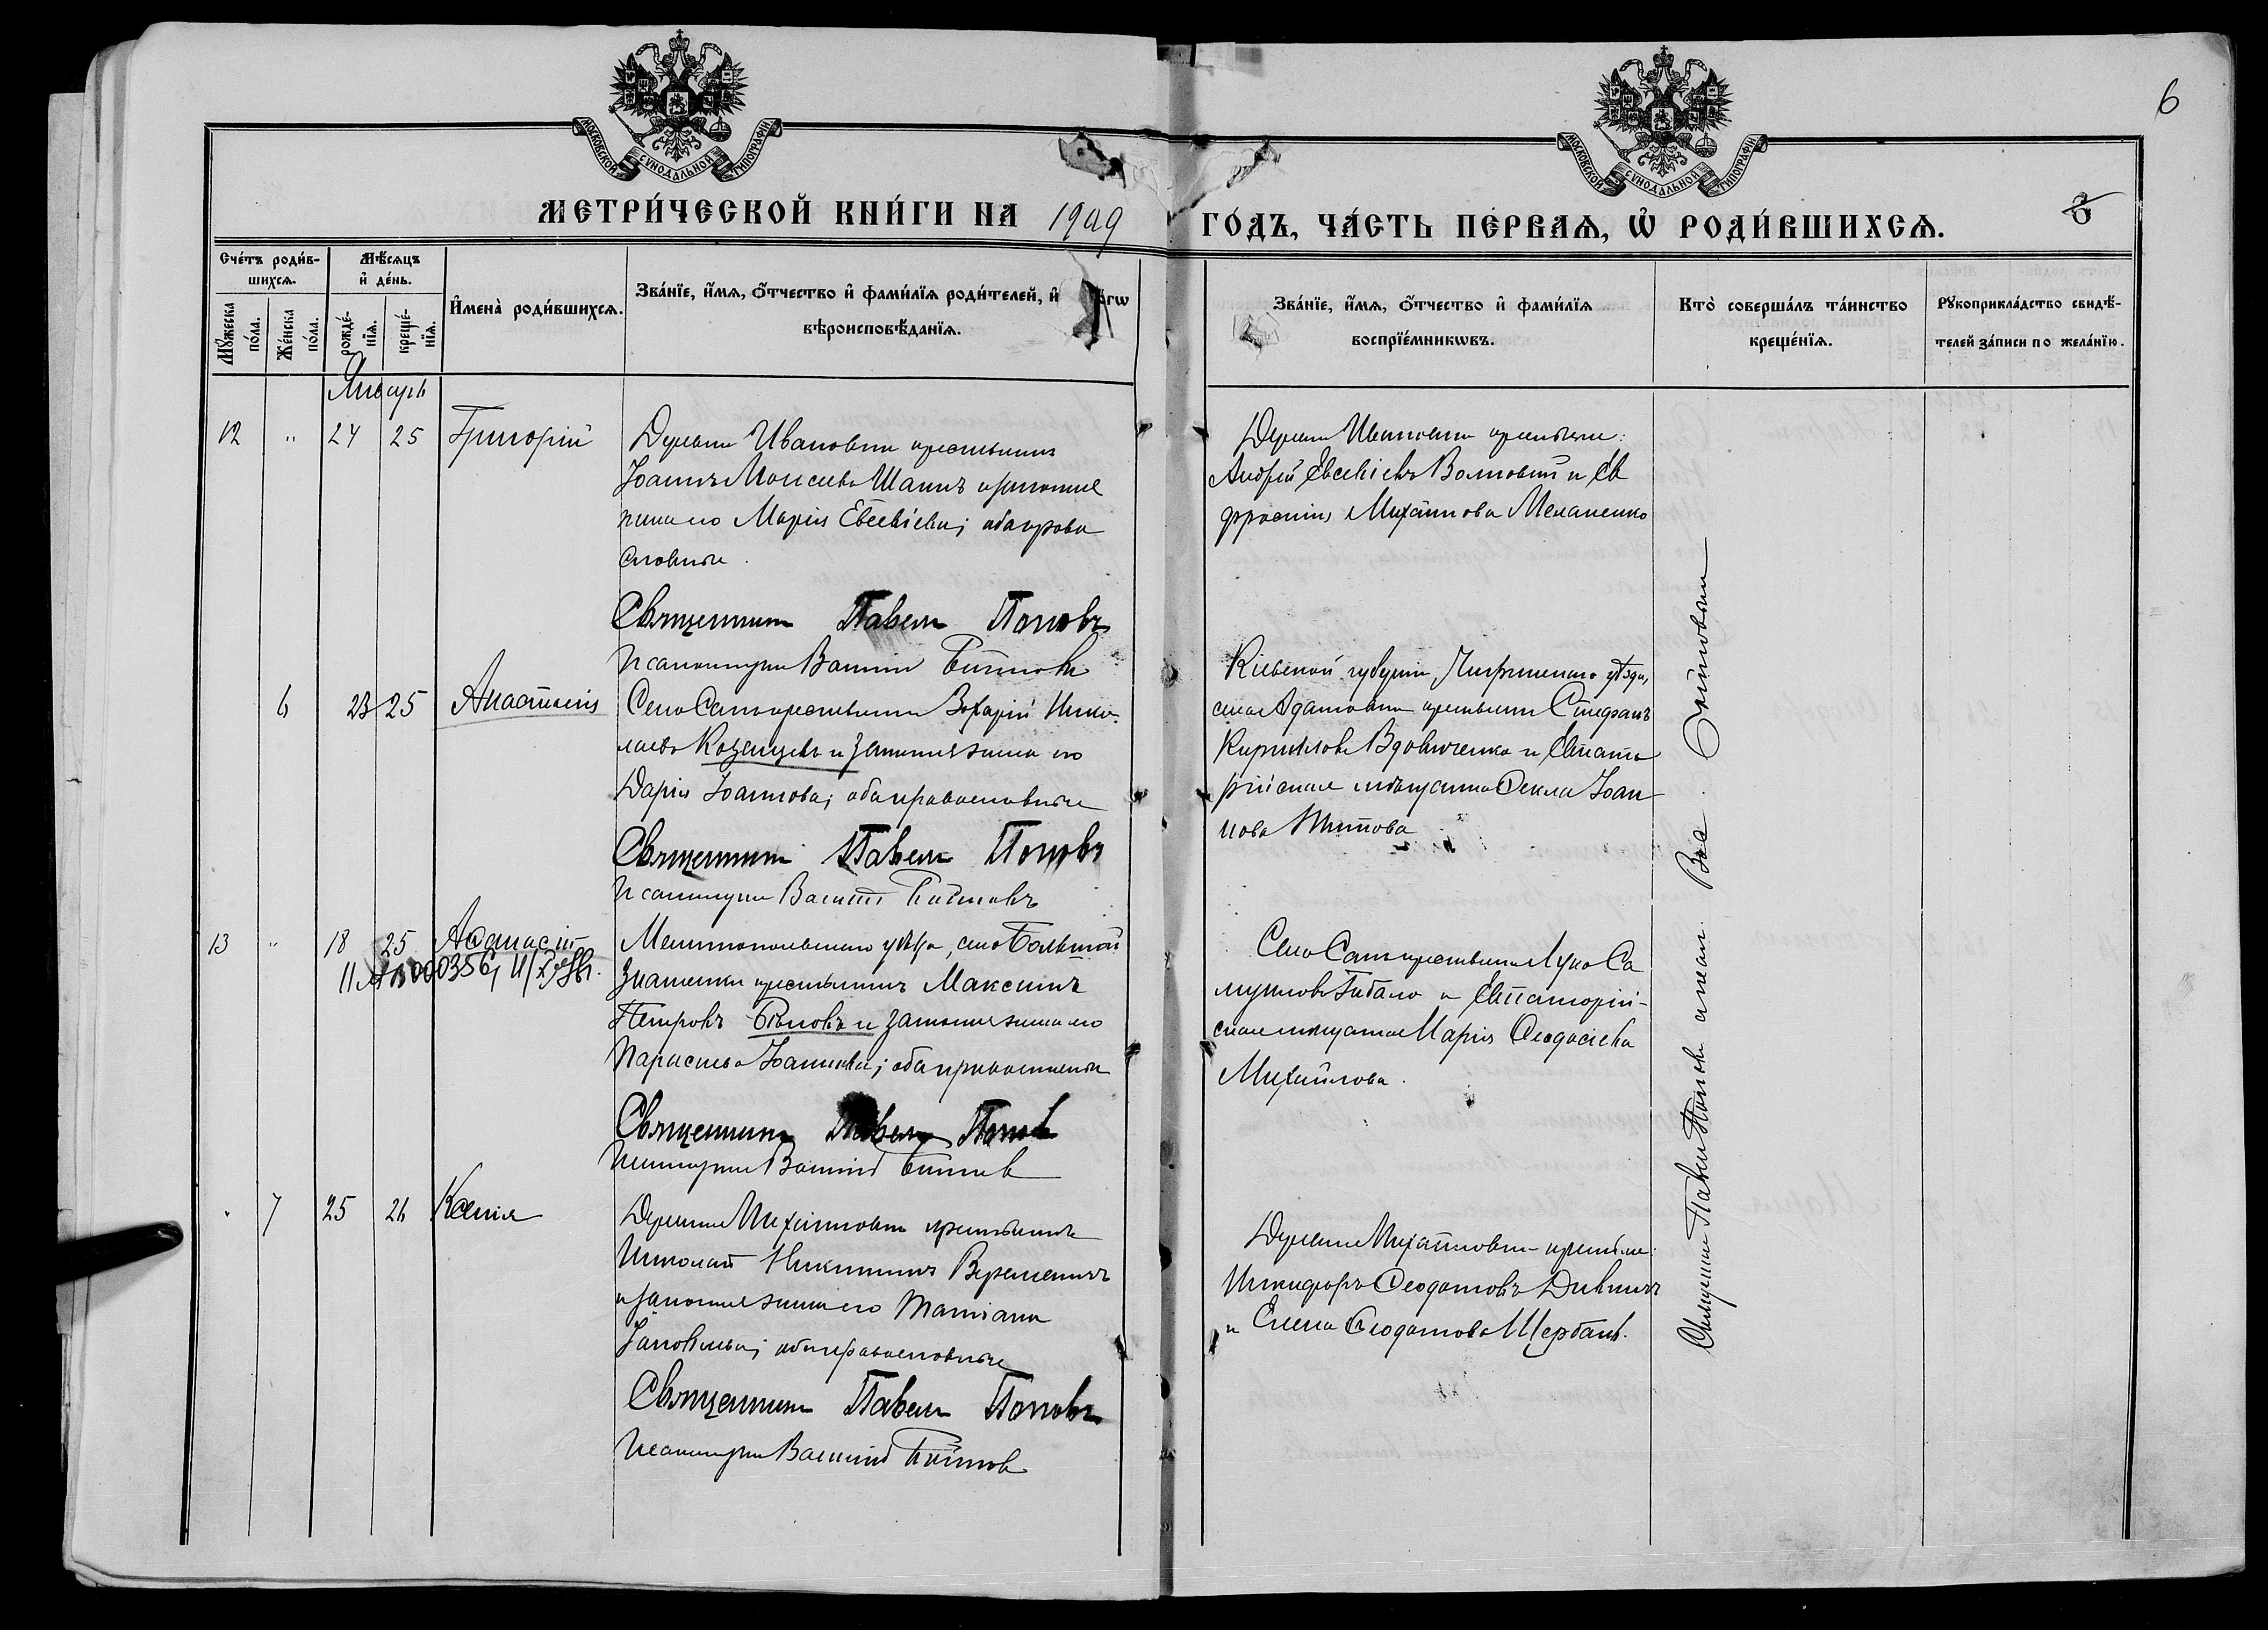 6
МОСКОВСКОЙ СУНОДАЛЬНОЙ ТИПОГРАФІИ
МОСКОВСКОЙ СУНОДАЛЬНОЙ ТИПОГРАФІИ
МЕТРИ́ЧЕСКОЙ КНИ́ГИ НА 1909
ГО́ДЪ, ЧА́СТЬ ПЕ́РВАѦ, Ѡ҆ РОДИ́ВШИХСѦ.
Сче́тъ роди́в-
шихсѧ.
Мѣ́сѧцъ
и҆ де́нь.
Мꙋ́жеска
по́ла.
Же́нска
по́ла.
рожде́-
нїѧ.
креще́-
нїѧ.
И҆мена̀ роди́вшихсѧ.
Зва́нїе, и҆́мѧ, ѻ҆́тчество и҆ фами́лїѧ роди́телей, и҆
вѣроисповѣ́данїѧ.
Зва́нїе, и҆́мѧ, ѻ҆́тчество и҆ фами́лїѧ
воспрїе́мникѡвъ.
Кто̀ соверша́лъ та́инство
креще́нїѧ.
Рꙋкоприкла́дство свидѣ́-
телей за́писи по жела́нїю.
Январь
12 " 24 25 Григорій
Деревни Ивановки крестьянинъ
Іоаннъ Моисеевъ и законная
жена его Марія Евсевіева; оба право
славные.
Священникъ Павелъ Поповъ
Псаломщикъ Василій
Деревни Ивановки крестьяне:
Андрей Евсевіевъ и Ев
фросинія Михайлова Меланенко
6 23 25 Анастасія
Село Сакъ крестьянинъ Захарій Нико-
лаевъ Козенцевъ и законная жена его
Дарія Іоаннова; оба православные
Священникъ Павелъ Поповъ
Псаломщикъ Василій
Кіевской губерніи, Чигринскаго уѣзда,
села Адамовки крестьянинъ Стефанъ
Кирилловъ Вдовиченко и Евпато
рійская мѣщанка Ѳекла Іоан
нова Титова
13 " 18 25 Аѳанасій
Мелитопольскаго уѣзда, села Большой
Знаменки крестьянинъ Максимъ
Петровъ Бѣловъ и законная жена его
Параскева Іоаннова; оба православные
Священникъ Павелъ Поповъ
Псаломщикъ Василій
Село Сакъ крестьянинъ Лука Са
муиловъ и Евпаторій-
ская мѣщанка Марія Ѳеодосіева
Михайлова.
" 7 25 26 Ксенія
Деревни Михайловки крестьянинъ
Николай Никитинъ
и законная жена его Татіана
Іаковлева; оба православные
Священникъ Павелъ Поповъ
Псаломщикъ Василій
Деревни Михайловки крестьяне:
Никифоръ Ѳеодотовъ
и Елена Ѳеодотова Щербань.
Священникъ Павелъ Поповъ